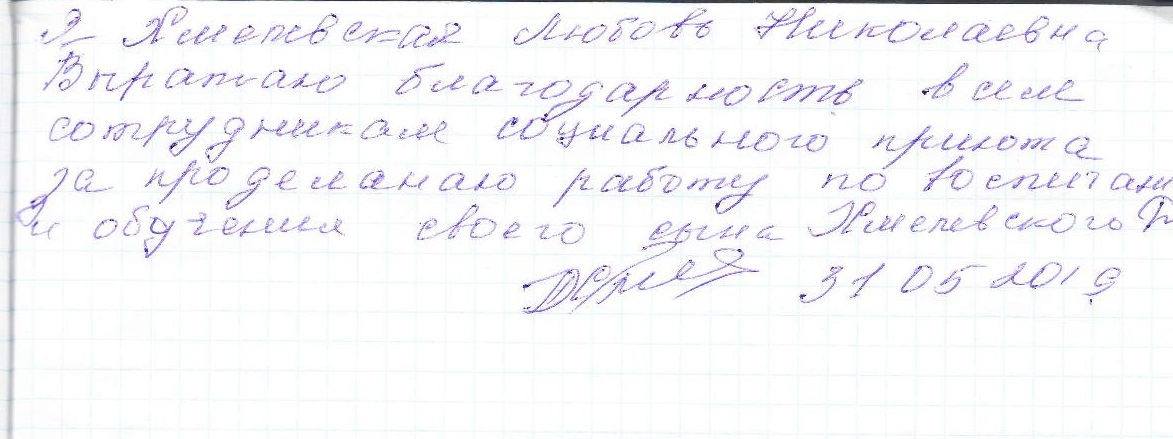 Я Хмелевская Любовь Николаевна
Выражаю благодарность всем
сотрудникам социального приюта
за проделанаю работу по воспитан
и обучения своего сына Хмелевского
31 05 2019